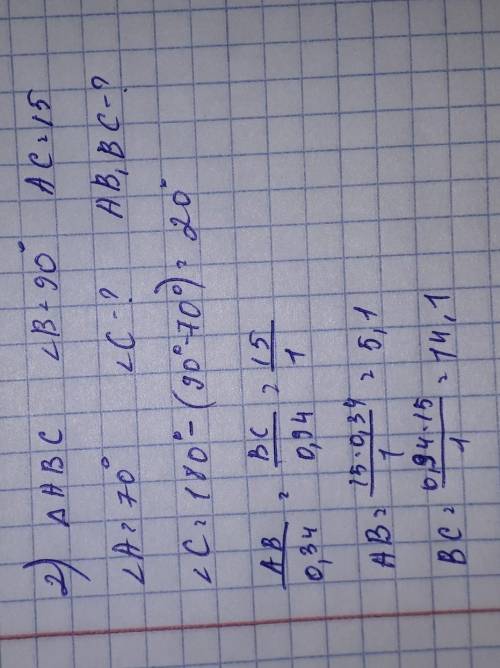 2) △ABC ∠B=90° AC=15
∠A=70° ∠C-? AB, BC-?
∠C=180°-(90°·70°)=20°
AB/0,34 = BC/0,94 = 15/1
AB = 15·0,34/1 = 5,1
BC = 0,94·15/1 = 14,1